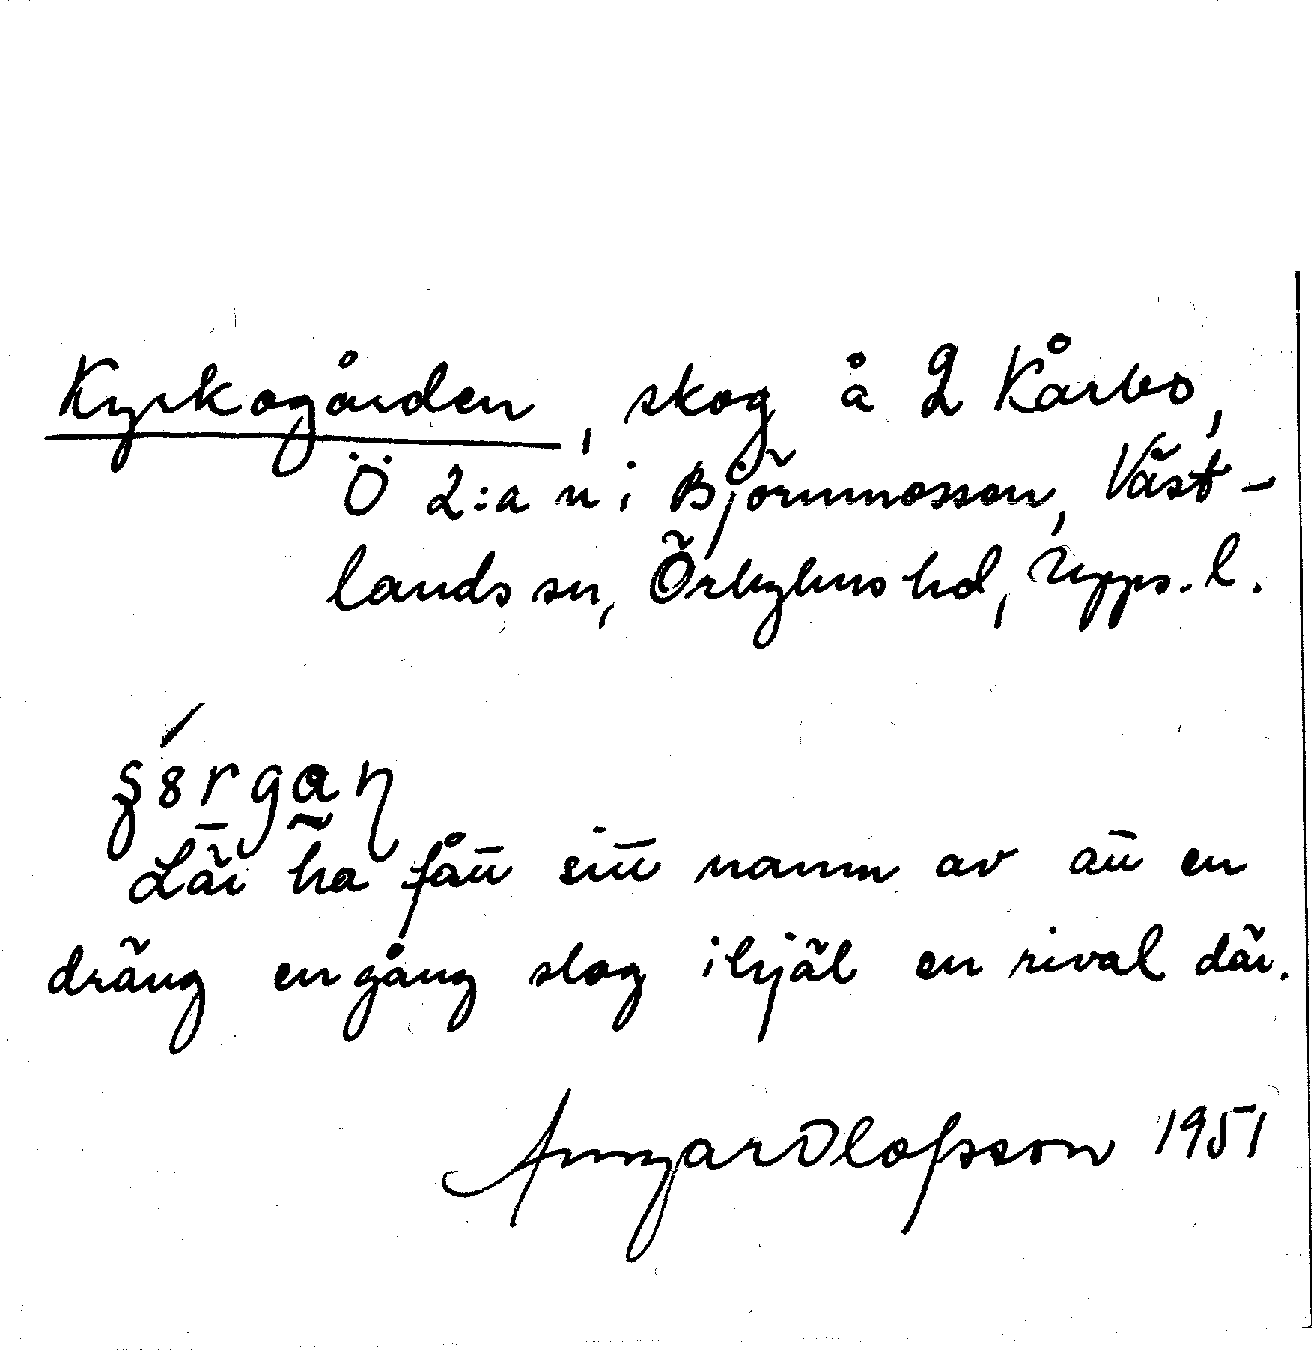 Kyrkogården, skog å 2 Kårbo,
Ö 2:a n i Björnmossen, Väst-
lands sn, Örbyhus hd, Upps. l.
Lär ha fått sitt namn av att en
dräng en gång slog ihjäl en rival där.
Olofsson 1951